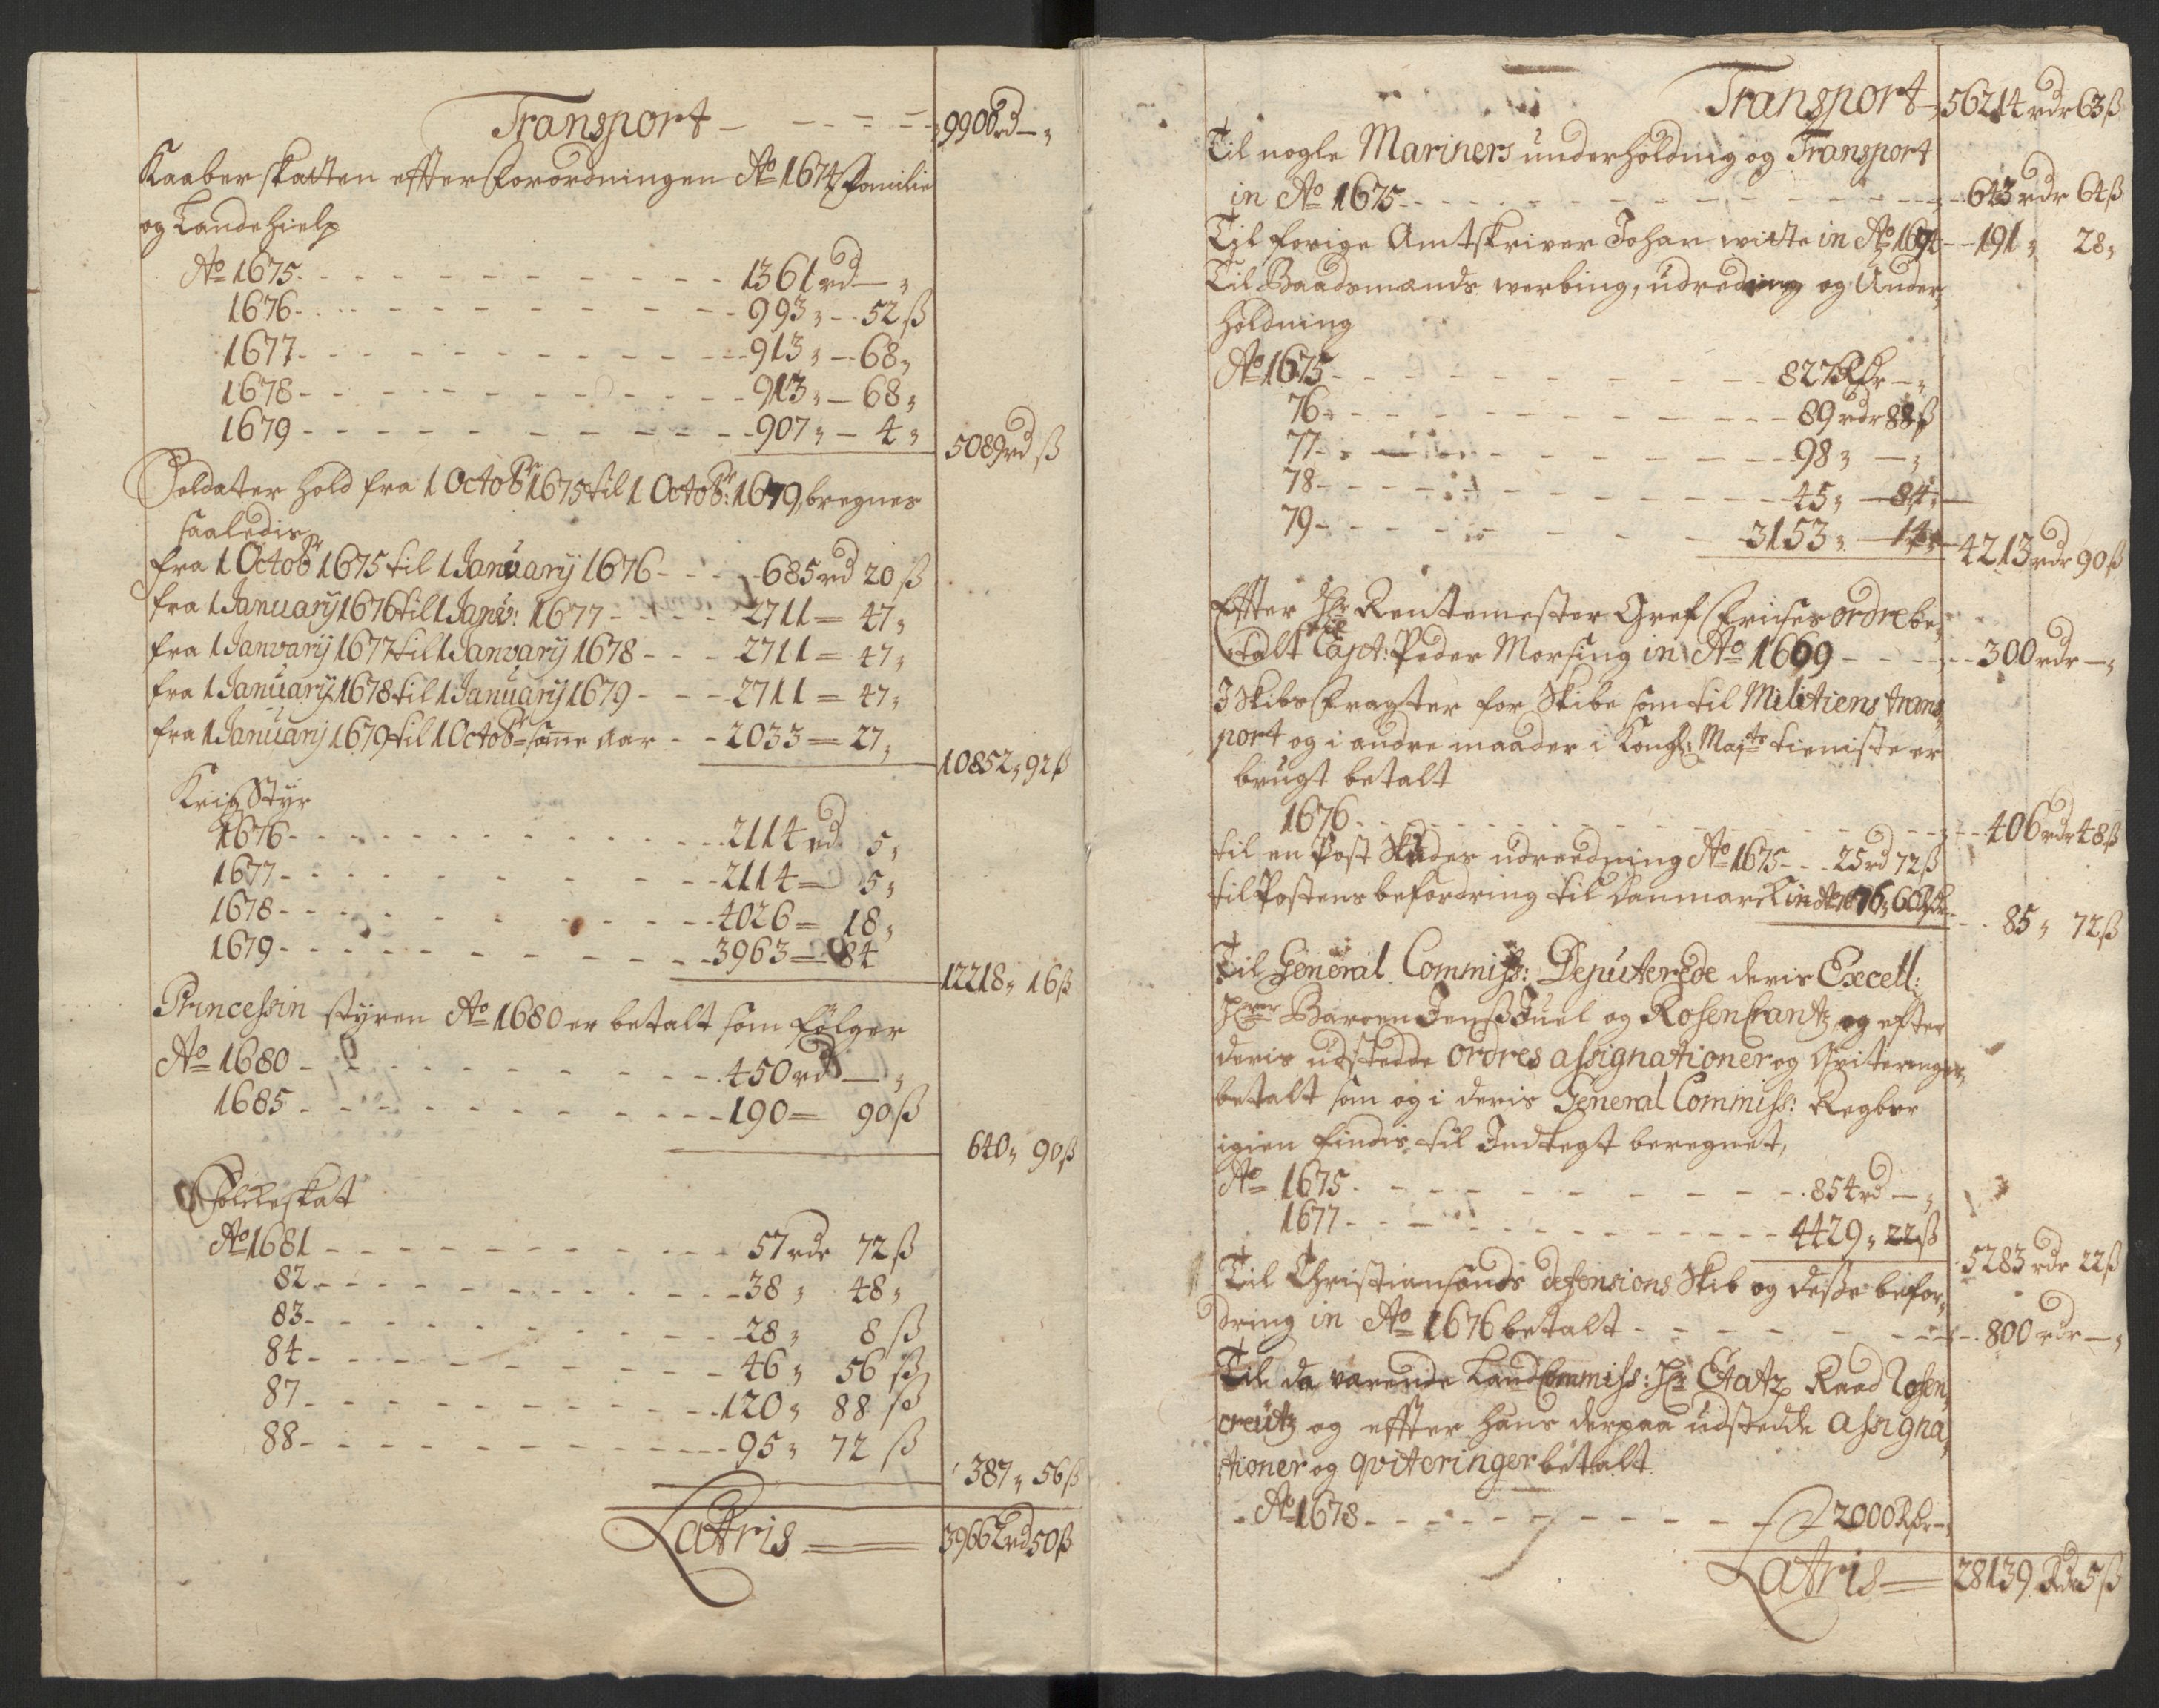 Transport - - - - - 9900rd - „
Kaaber skatten effter Forordningen Ao 1674 Familie
og Lande hielp
Ao 1675 - - - 1361 rd - „
1676 - - - 993 „ - 52 ß
1677 - - - 913 „ - 68 „
1678 - - - 913 „ - 68 „
1679 - - - 907 „ - 4 „ 5089 rd ß
Soldater hold fra 1 Octobr 1675 til 1 Octobr: 1679, bregnes
saaledis
fra 1 Octobr 1675 til 1 January 1676 - - - 685 rd 20 ß
fra 1 January 1676 til 1 Janv: 1677 - - - 2711 = 47 „
fra 1 January 1677 til 1 January 1678 - - - 2711 = 47 „
fra 1 January 1678 til 1 January 1679 - - - 2711 = 47 „
fra 1 January 1679 til 1 Octobr same aar - - 2033 = 27 „ 10852 „ 92 ß
Krig Styr
1676 - - - 2114 rd 5 „
1677 - - - 2114 = 5 „
1678 - - - 4026 = 18 „
1679 - - - 3963 = 84 12218 „ 16 ß
Princessin styren Ao 1680 er betalt som følger
Ao 1680 - - - 450 rd - „
1685 - - - 190 = 90 ß
640 „ 90 ß
Folleskat
Ao 1681 - - - 57 rdr 72 ß
82 - - - 38 „ 48 „
83 - - - 28 „ 8 ß
84 - - - 46 „ 56 ß
87 - - - 120 „ 88 ß
88 - - - 95 „ 72 ß
387 „ 56 ß
Latris = 39662 rd 50 ß
Transport - 56214 rdr 63 ß
Til nogle Mariners underholdnig og Transport
in Ao 1675 - - - 643 rdr 64 ß
Til forige Amtskriver Johan witte in Ao 1674 - - 191 „ 28 „
Til Baadsmands werbing, udreding og Under,
holdning
Ao 1675 - - - 827 Rdr - „
76 - - - 89 rdr 88 ß
77 - - - 98 „ - „
78 - - - 45 „ - 84 „
79 - - - 3153 „ - 14 „ 4213 rdr 90 ß
Effter Hr Rentemester Gref Frises ordre be,
talt Capt: Peder Morsing in Ao 1669 - - - 300 rdr - „
I Skibs Fragter for Skibe som til Militiens trans,
port og i andre maader i Kongl: Mayts tieniste er
brugt betalt
1676 - - - 406 rdr 48 ß
til en Post Skudes udreedning Ao 1675 - - 25 rd 72 ß
til Postens befordring til Danmarck in Ao 1676, 60 Rdr - - 85 „ 72 ß
Til General Commiss: Deputerede deris Excell:
Hrer Baroen Jens Juel og Rosencrantz, og efter
deris udstedde ordres assignationer og Qviteringer,
betalt som og i deris General Commiss: Regber
igien findis til Indtegt beregnet,
Ao 1675 - - - 854 rd - „
1677 - - - 4429 „ 22 ß
5283 rdr 22 ß
Til Christiansands defensions Skib og desse befor,
dring in Ao 1676 betalt - - - 800 rdr - „
Til da varende Land Commiss: Hr Etatz Raad Rosen,
creutz og effter hans derpaa udstedde assigna,
tioner og qviteringer betalt
Ao 1678 - - - 2000 Rdr - „
Latris = 28139 Rdr 5 ß